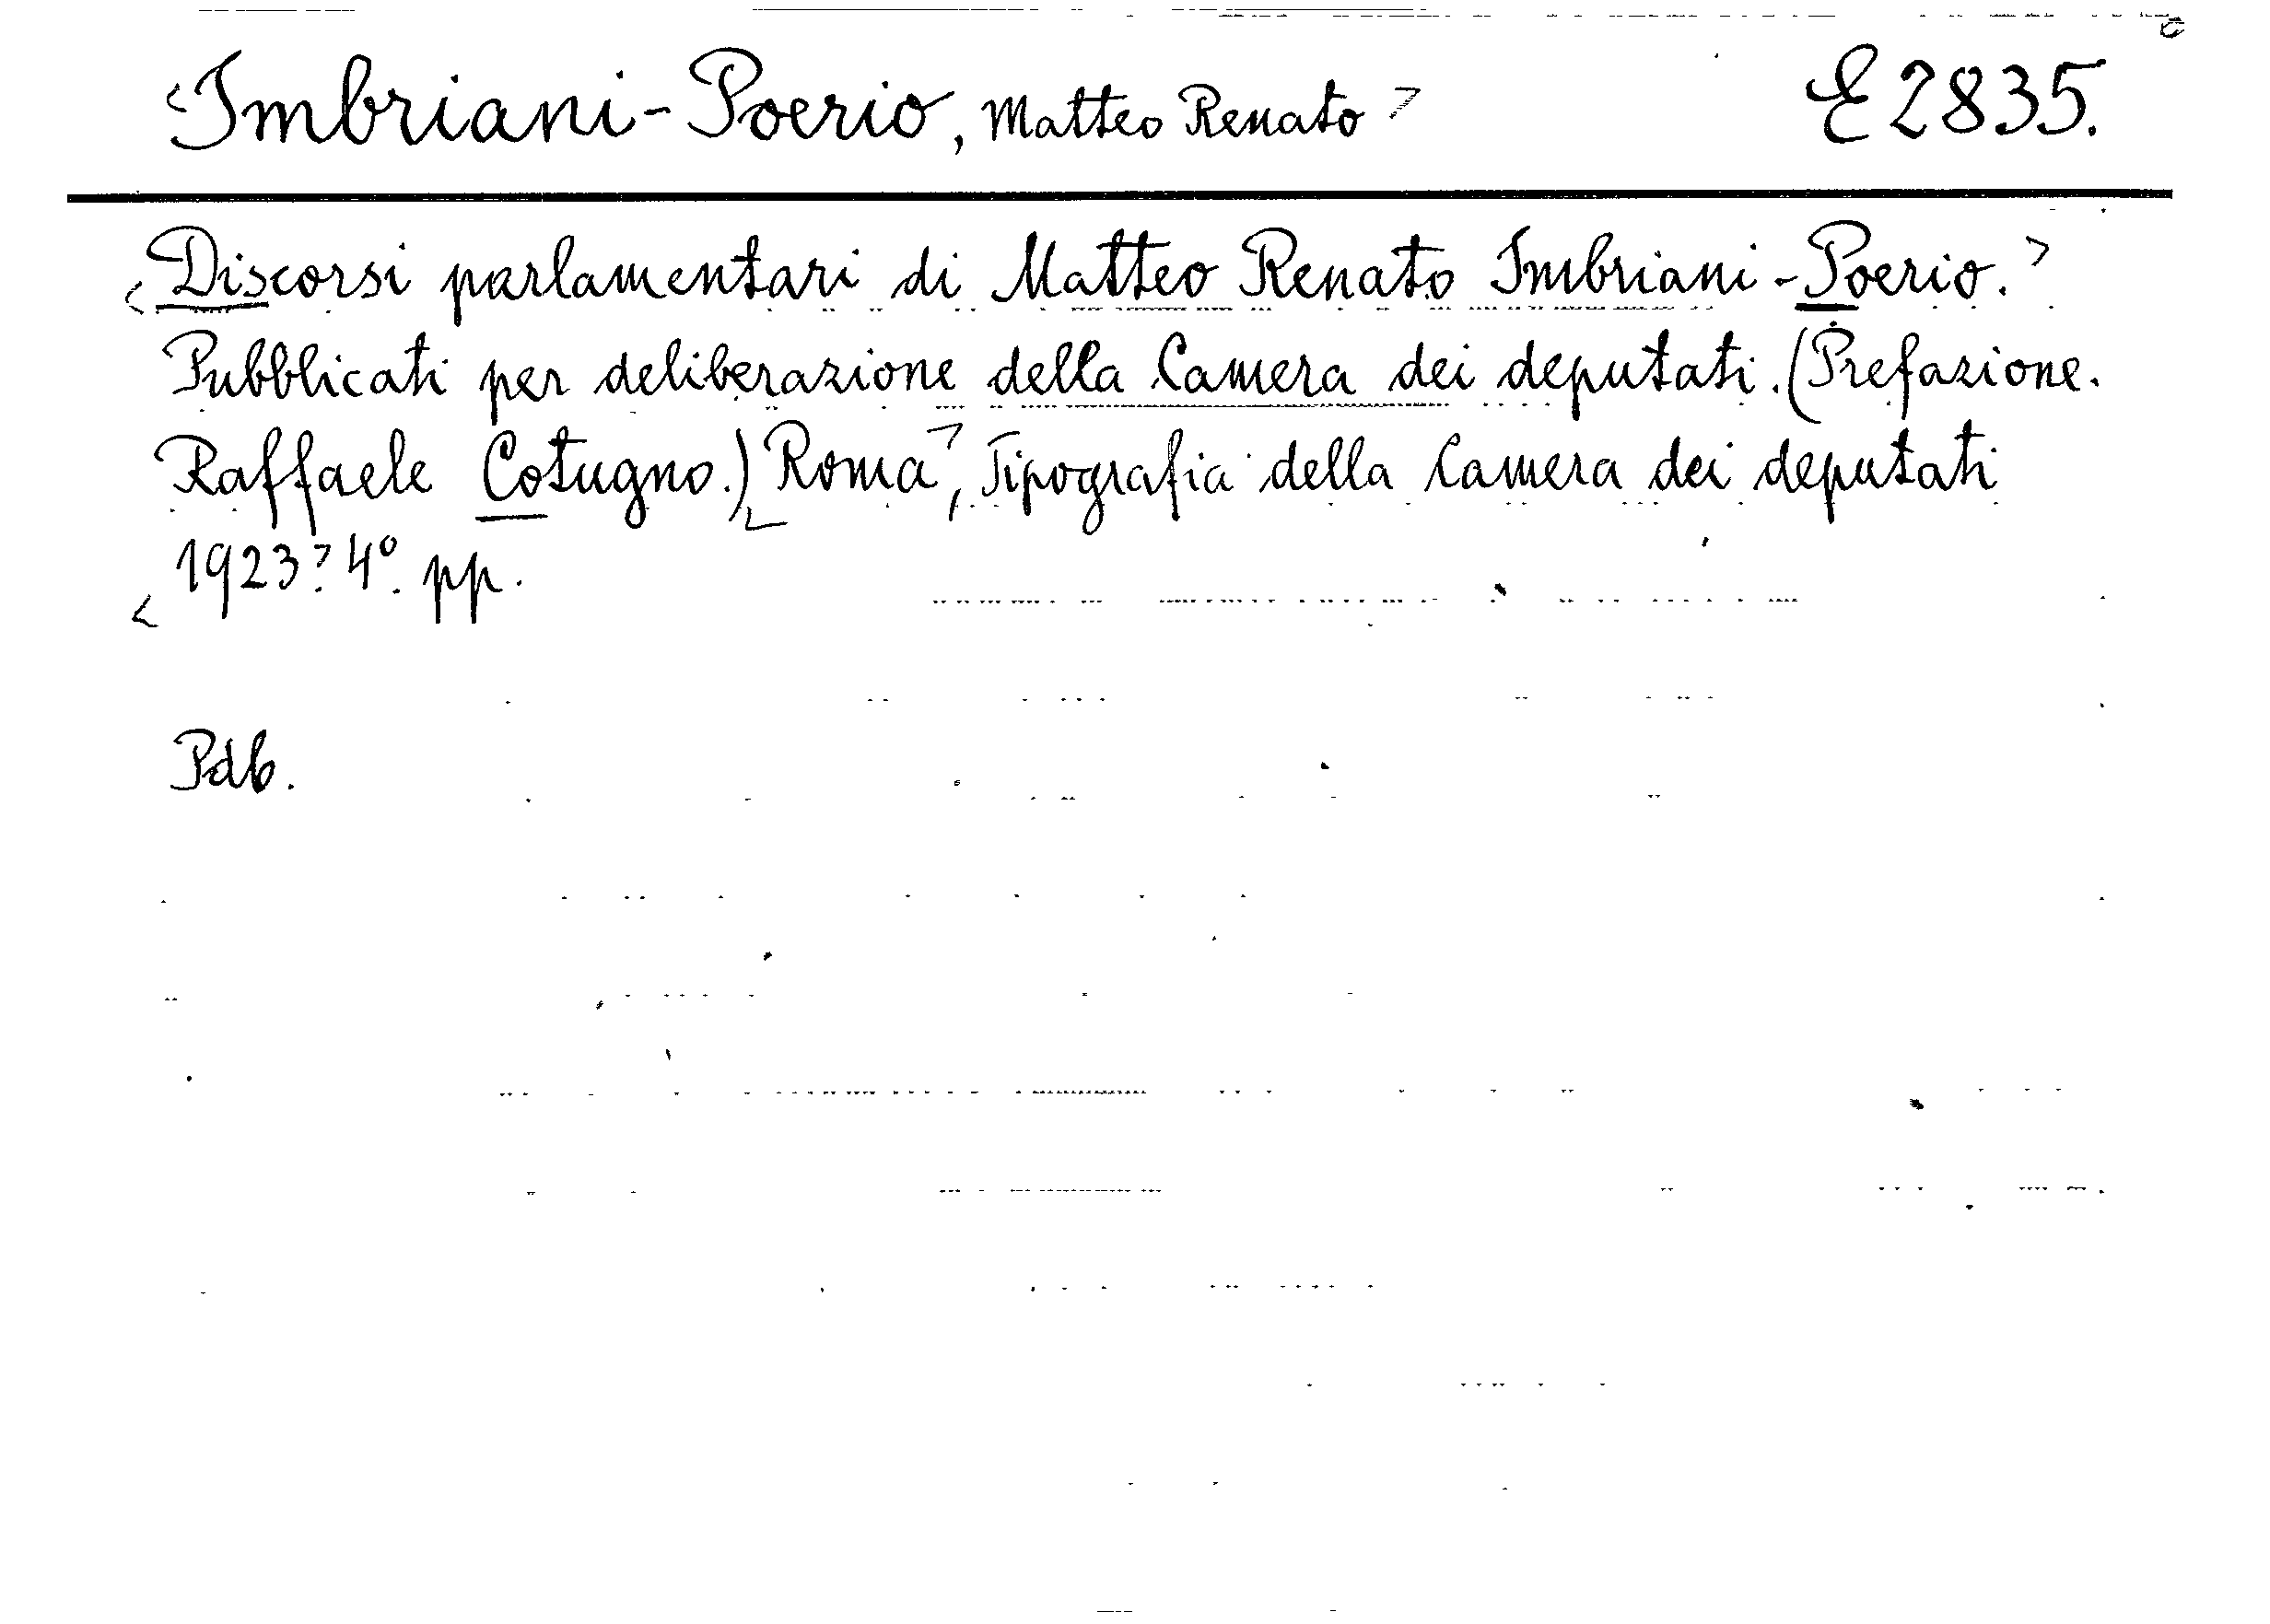 <Imbriani-Poerio, Matteo Renato> E 2835.
<Discorsi parlamentari di Matteo Renato Imbriani-Poerio.>
Pubblicati per deliberazione della Camera dei deputati. (Prefazione.
Raffaele Cotugno.) <Roma>, Tipografia della Camera dei deputati
<1923>. 4°. pp.
Pdb.